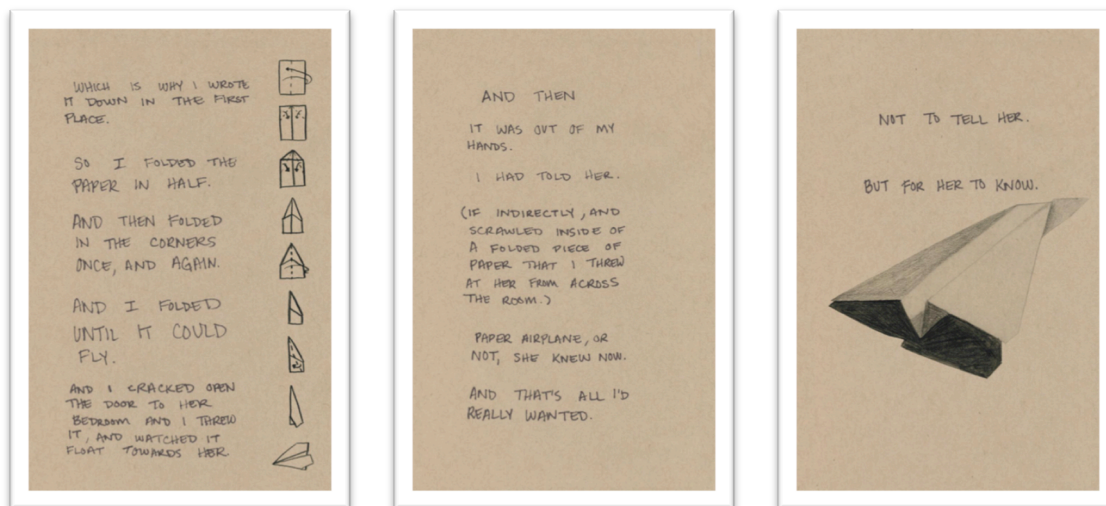 WHICH IS WHY I WROTE
IT DOWN IN THE FIRST
PLACE.
SO I FOLDED THE
PAPER IN HALF.
AND THEN FOLDED
IN THE CORNERS
ONCE, AND AGAIN.
AND I FOLDED
UNTIL IT COULD
FLY.
AND I CRACKED OPEN
THE DOOR TO HER
BEDROOM AND I THREW
IT, AND WATCHED IT
FLOAT TOWARDS HER
AND THEN
IT WAS OUT OF MY
HANDS.
I HAD TOLD HER.
(IF INDIRECTLY, AND
SCRAWLED INSIDE OF
A FOLDED PIECE OF
PAPER THAT I THREW
AT HER FROM ACROSS
THE ROOM.)
PAPER AIRPLANE, OR
NOT, SHE KNEW NOW.
AND THAT'S ALL I'D
REALLY WANTED.
NOT TO TELL HER.
BUT FOR HER TO KNOW.